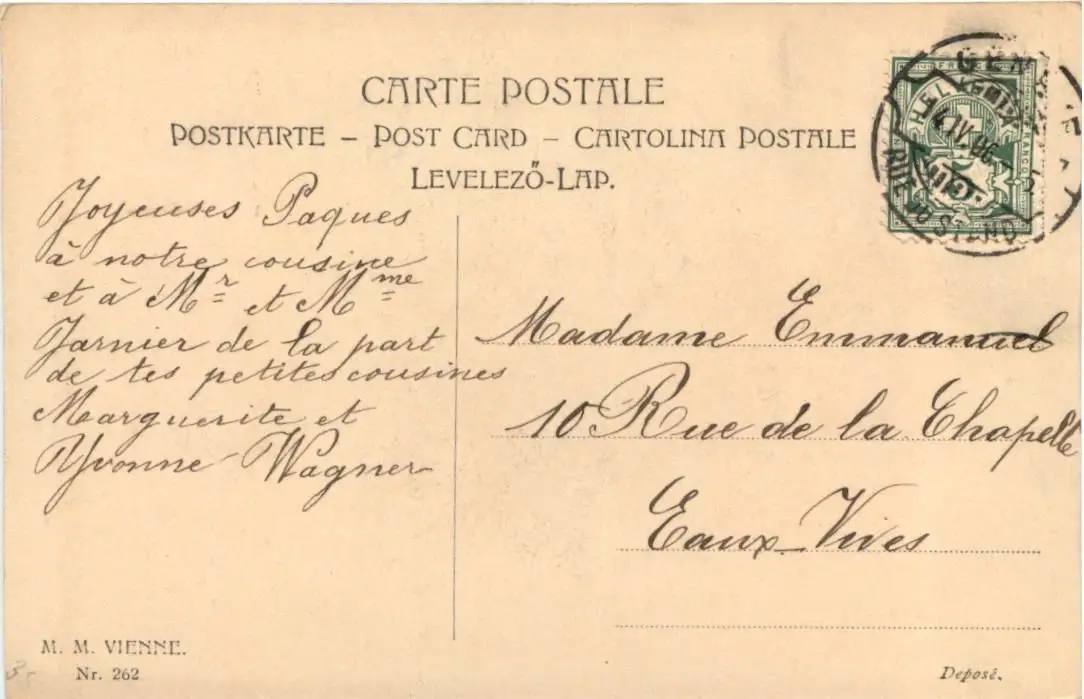 CARTE POSTALE
POSTKARTE – POST CARD – CARTOLINA POSTALE
LEVELEZŐ-LAP.
Joyeuses Paques
à notre cousine
et à Mr et Mme
Jarnier de la part
de tes petites cousines
Marguerite et
Yvonne Wagner
Madame Emmanuel
10 Rue de la Chapelle
Eaux-Vives
FRANCO
HELVETIA
RUE DU STAND
M. M. VIENNE.
Nr. 262
Deposé.